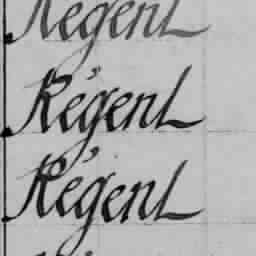 Régent
Régent
Régent